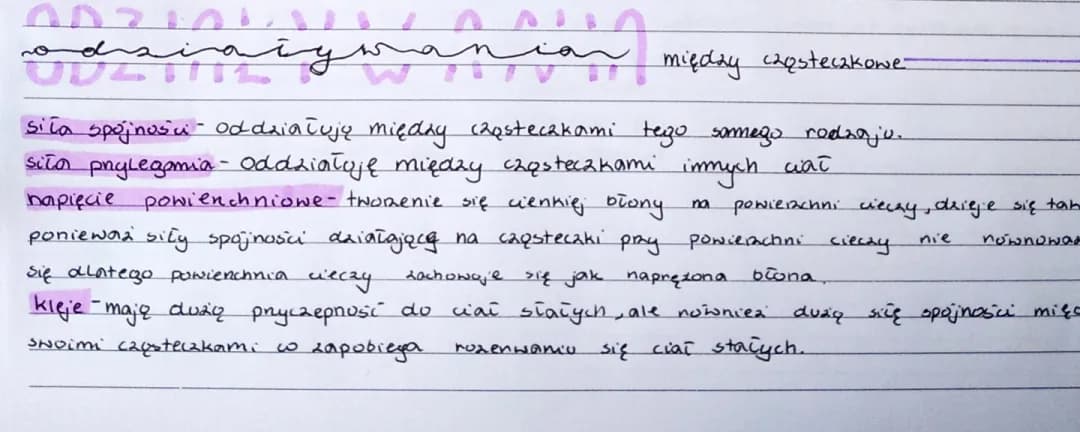 ODZIAŁYWANIA
odziaływania między cząsteczkowe
siła spójności - oddziałuję między cząsteczkami tego samego rodzaju.
siła przylegania - oddziałuję między cząsteczkami innych ciał
napięcie powierzchniowe - tworzenie się cienkiej błony na powierzchni cieczy, dzieje się tak
ponieważ siły spójności działającą na cząsteczki przy powierzchni cieczy nie równoważ
się dlatego powierzchnia cieczy zachowuje się jak naprężona błona.
kleje - mają dużą przyczepność do ciał stałych, ale również dużą siłę spójności mię
swoimi cząsteczkami co zapobiega rozerwaniu się ciał stałych.